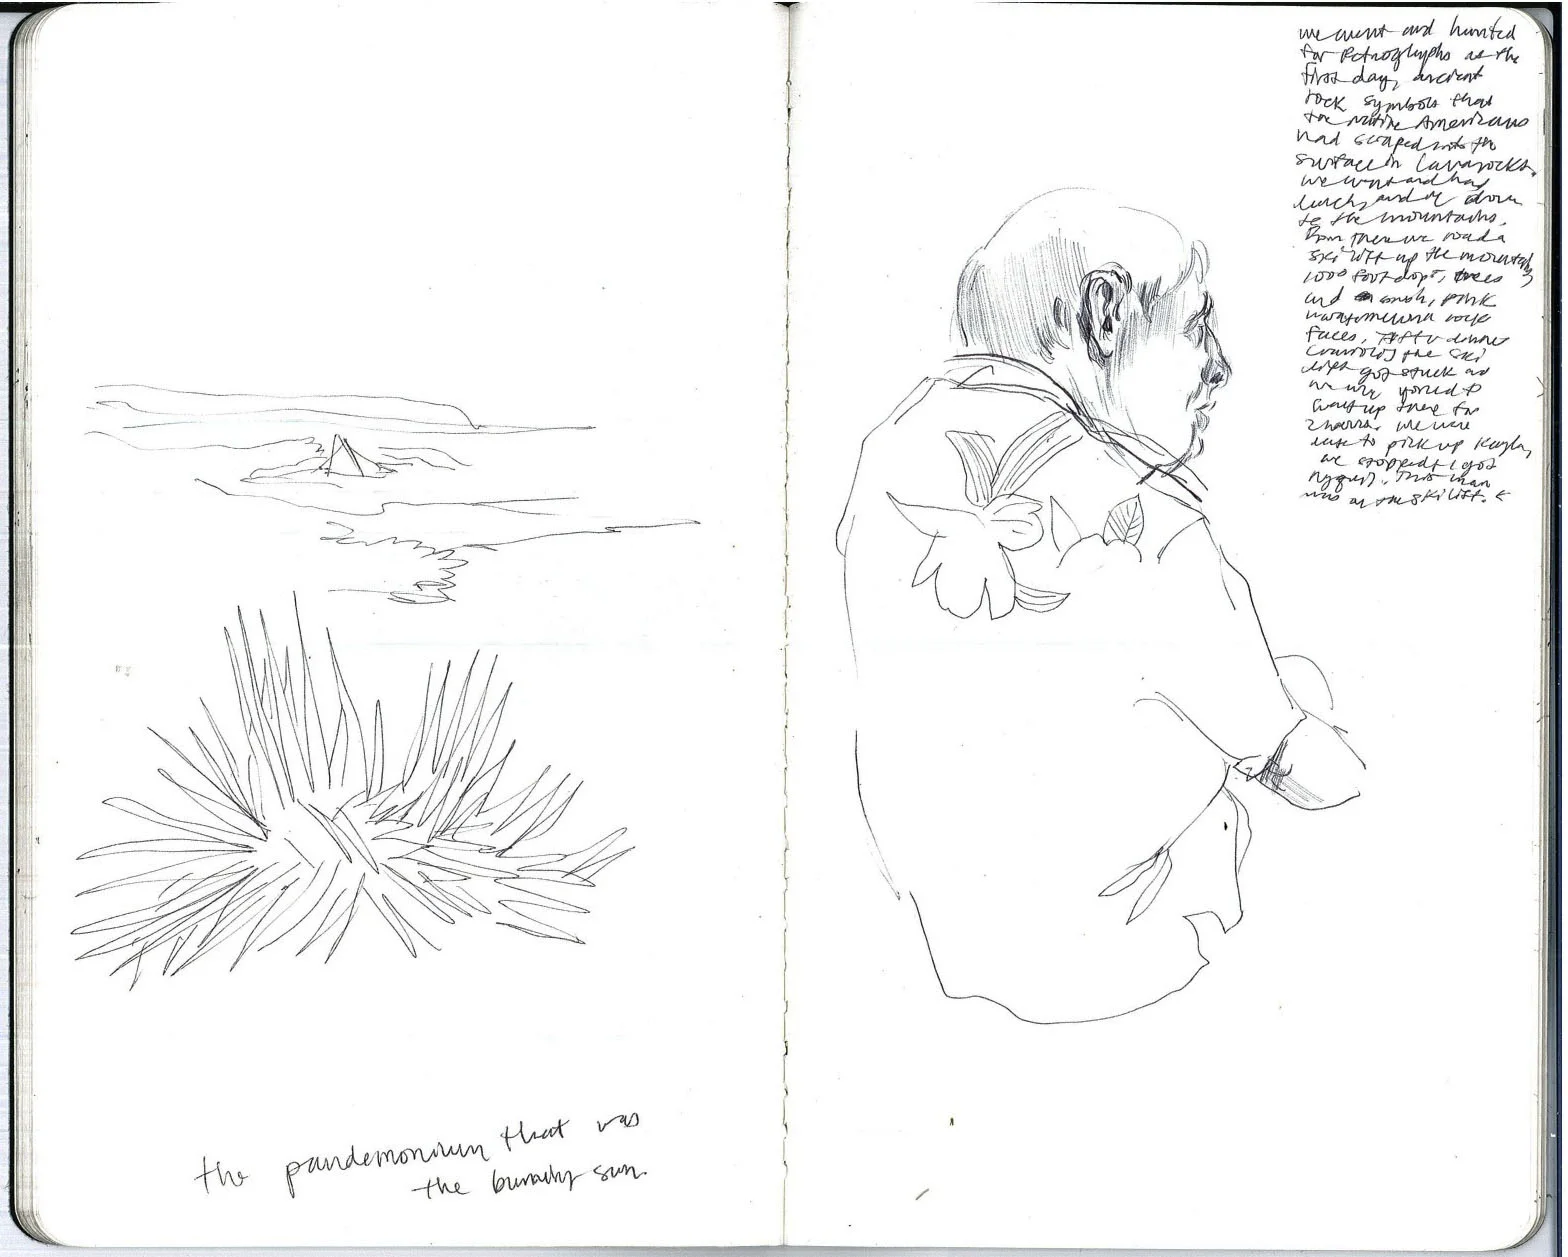 the pandemonium that was
the burning sun.
we went and hunted
for Petroglyphs as the
first day, ancient
rock symbols that
the native Americans
had scraped into the
surface in lava rocks.
we went and had
lunch, and
to the mountains.
From there we road a
ski lift up the mountain,
1000 foot drops, trees
and pink
watermelon rock
faces. After dinner
the ski
lift got stuck and
we were forced to
wait up there for
2 hours. we were
late to pick up Kayla,
we stopped & I got
Nyquil. This man
was on the ski lift.